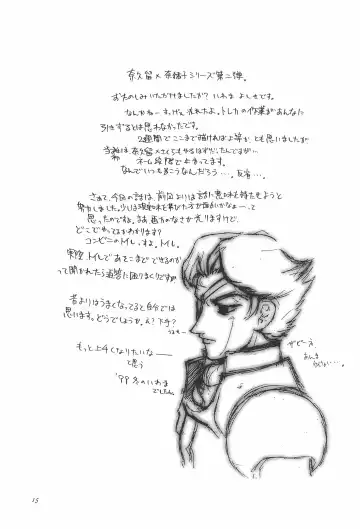 奈久留×奈緒子シリーズ第二弾。
お楽のしみいただけましたか？いわま よしきです。
なんかねー。すげぇ 疲れたよ。トレカの作業があんなに
引きずるとは思わなかったです。
2週間でここまで描ければ上等か、とも思いましたが
当初は奈久留×さくらもやるはずだったんですが…
ネーム段階で止まってます。
なんでいつもこうなんだろう…。反省…。
さてさて、今回の話は、前回よりは話に意味を持たせようと
努力しました。少しは現実味を帯びた方が面白いかなぁーって
思ったのですよ。
どこでやってるかわかります？
コンビニのトイレ。すよ。トイレ。
実際、トイレであそこまでできるのか
って聞かれたら返答に困りまくりですが
昔よりはうまくなってると自分では
思います。どうでしょうか。え？下手？
もっと上手くなりたいなー
と思う
'99 冬のいわま
でしたね
15